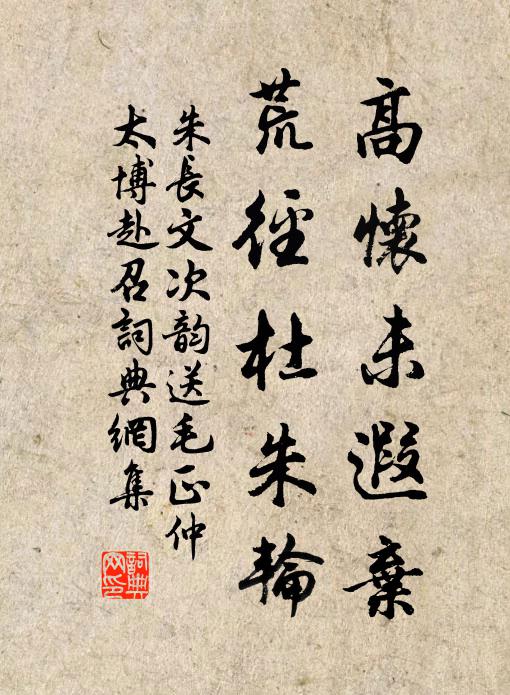 高懷未遐棄
荒徑杜朱輪
朱長文次韵送毛正仲
太博赴召詞典網集
詞典網印